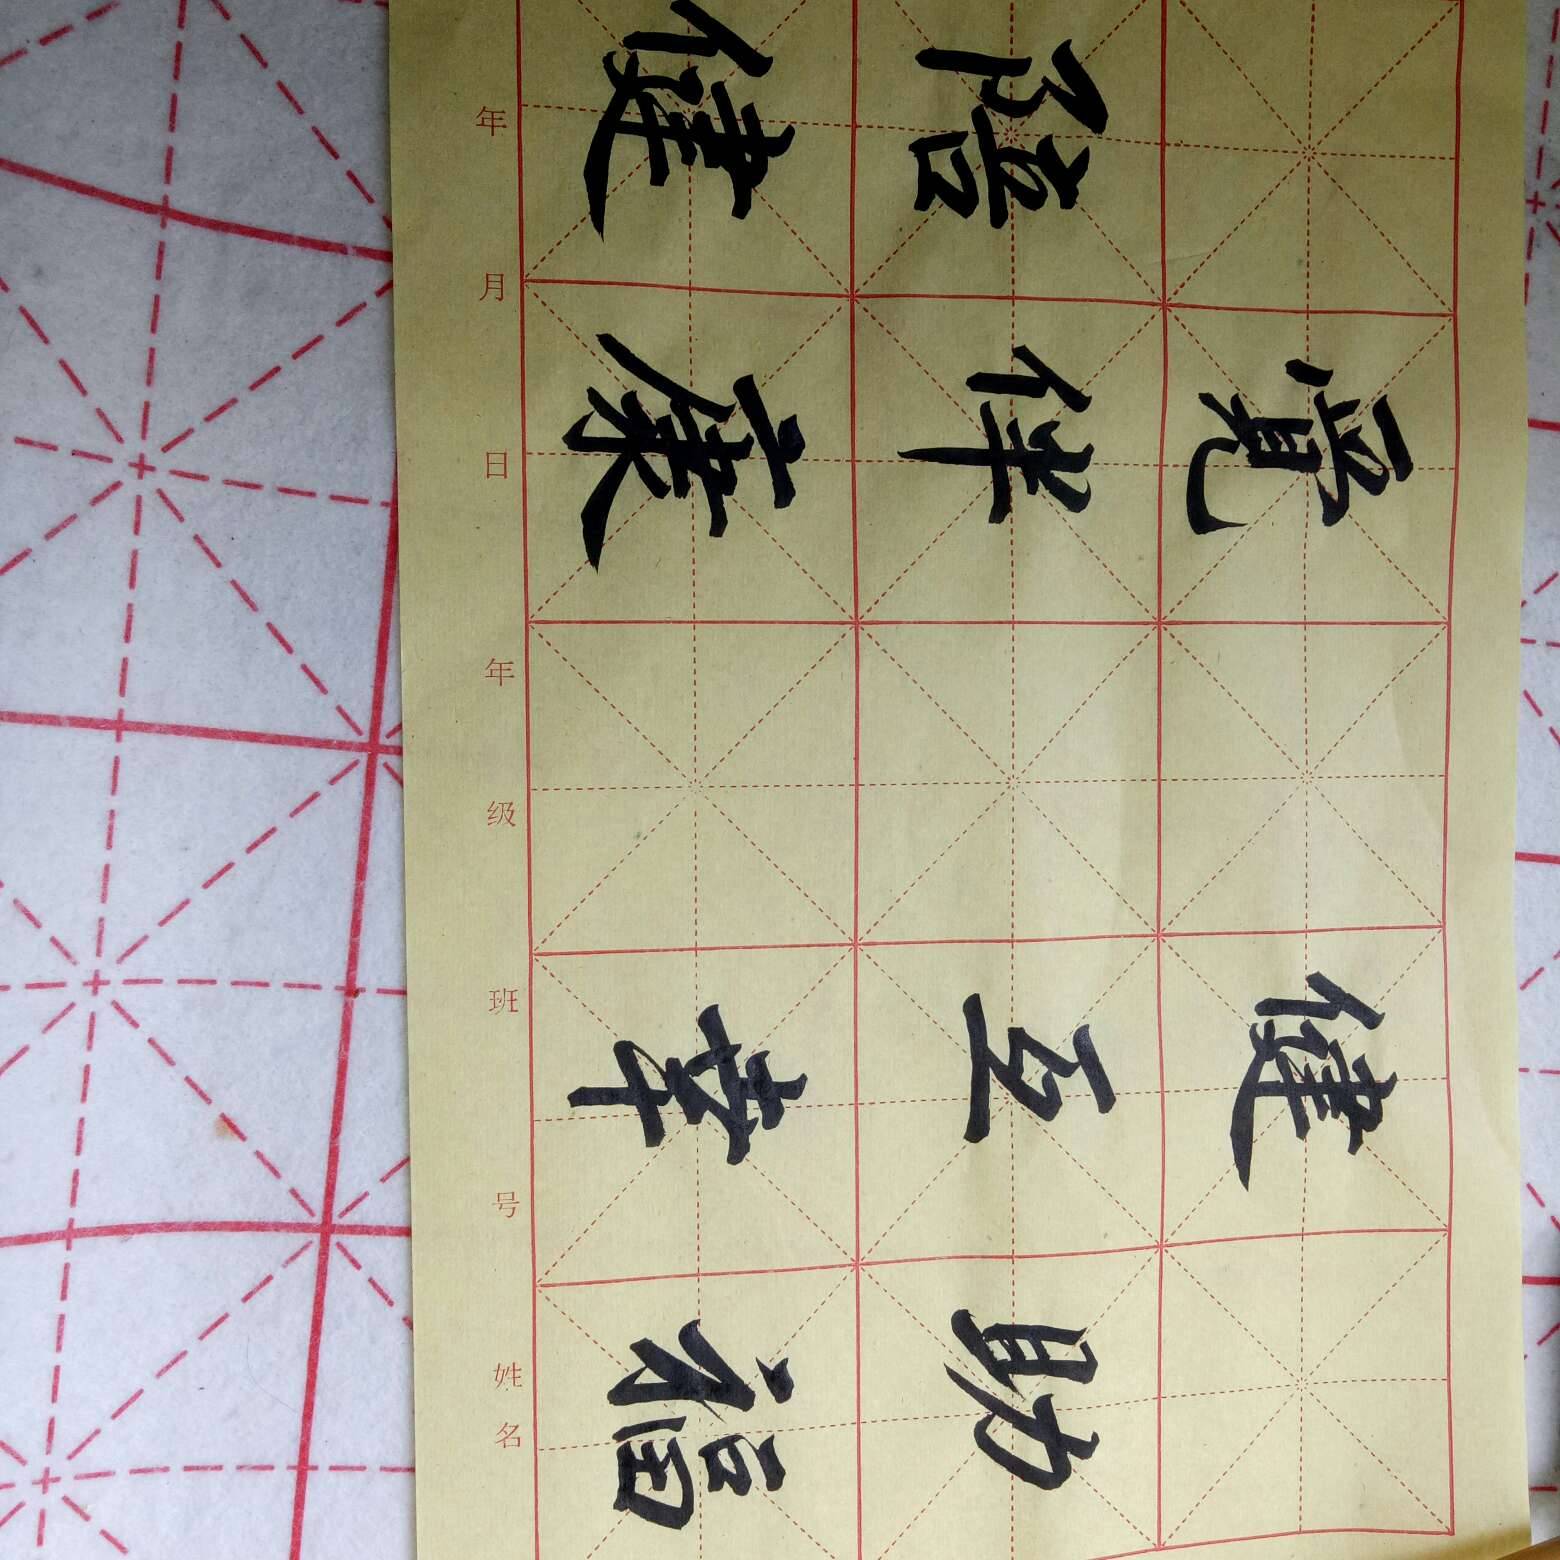 健
陪伴 互助
健康 幸福
年 月 日 年 级 班 号 姓名